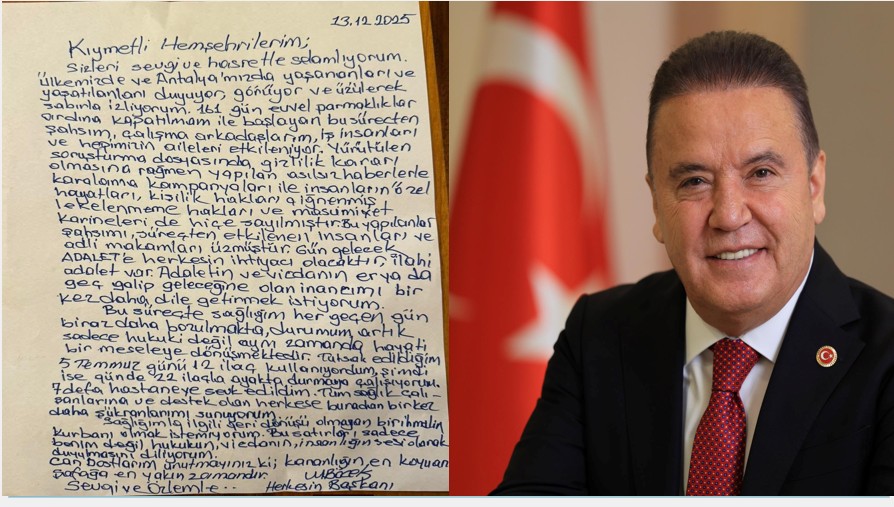 13.12.2025
Kıymetli Hemşehrilerim;
Sizleri sevgi ve hasretle selamlıyorum.
Ülkemizde ve Antalya'mızda yaşananları ve
yaşatılanları duyuyor, görüyor ve üzülerek
sabırla izliyorum. 161 gün evvel parmaklıklar
ardına kapatılmam ile başlayan bu süreçten
şahsım, çalışma arkadaşlarım, iş insanları
ve hepimizin aileleri etkileniyor. Yürütülen
soruşturma dosyasında, gizlilik kararı
olmasına rağmen yapılan asılsız haberlerle
karalama kampanyaları ile insanların özel
hayatları, kişilik hakları çiğnenmiş
lekelenmeme hakları ve masumiyet
karineleri de hiçe sayılmıştır. Bu yapılanlar
şahsımı, süreçten etkilenen insanları ve
adli makamları üzmüştür. Gün gelecek
ADALET'e herkesin ihtiyacı olacaktır, ilahi
adalet var. Adaletin ve vicdanın er ya da
geç galip geleceğine olan inancımı bir
kez daha dile getirmek istiyorum.
Bu süreçte sağlığım her geçen gün
biraz daha bozulmakta, durumum artık
sadece hukuki değil aynı zamanda hayati
bir meseleye dönüşmektedir. Tutsak edildiğim
5 Temmuz günü 12 ilaç kullanıyordum, şimdi
ise günde 22 ilaçla ayakta durmaya çalışıyorum.
7 defa hastaneye sevk edildim. Tüm sağlık çalı-
şanlarına ve destek olan herkese buradan bir kez
daha şükranlarımı sunuyorum.
Sağlığımla ilgili geri dönüşü olmayan bir ihmalin
kurbanı olmak istemiyorum. Bu satırları sadece
benim değil hukukun, vicdanın, insanlığın sesi olarak
duyulmasını diliyorum.
Can Dostlarım unutmayınız ki; karanlığın en koyu anı
şafağa en yakın zamandır.
Sevgi ve Özlemle.. Herkesin Başkanı